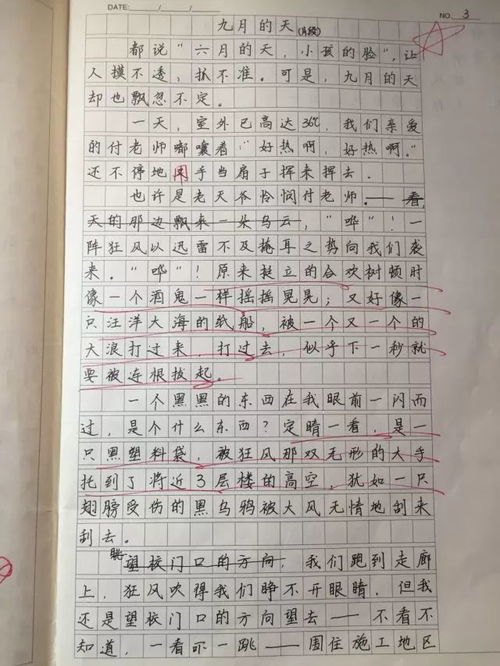 DATE: / /
NO. 3
九月的天(片段)
都说“六月的天，小孩的脸”，让
人摸不透，抓不准。可是，九月的天
却也飘忽不定。
一天，室外已高达36℃，我们亲爱
的付老师嘟囔着“好热啊，好热啊。”
还不停地用手当扇子挥来挥去。
也许是老天爷怜悯付老师。——看，
天的那边飘来一朵乌云，“哗”！一
阵狂风以迅雷不及掩耳之势向我们袭
来。“哗”！原来挺立的合欢树顿时
像一个酒鬼一样摇摇晃晃；又好像一
只汪洋大海的纸船，被一个又一个的
大浪打过来，打过去，似乎下一秒就
要被连根拔起。
一个黑黑的东西在我眼前一闪而
过，是个什么东西？定睛一看，是一
只黑塑料袋，被狂风那双无形的大手
托到了将近3层楼的高空，犹如一只
翅膀受伤的黑乌鸦被大风无情地刮来
刮去。
望校门口的方向，我们跑到走廊
上，狂风吹得我们睁不开眼睛，但我
还是望校门口的方向望去——不看不
知道，一看吓一跳——围住施工地区